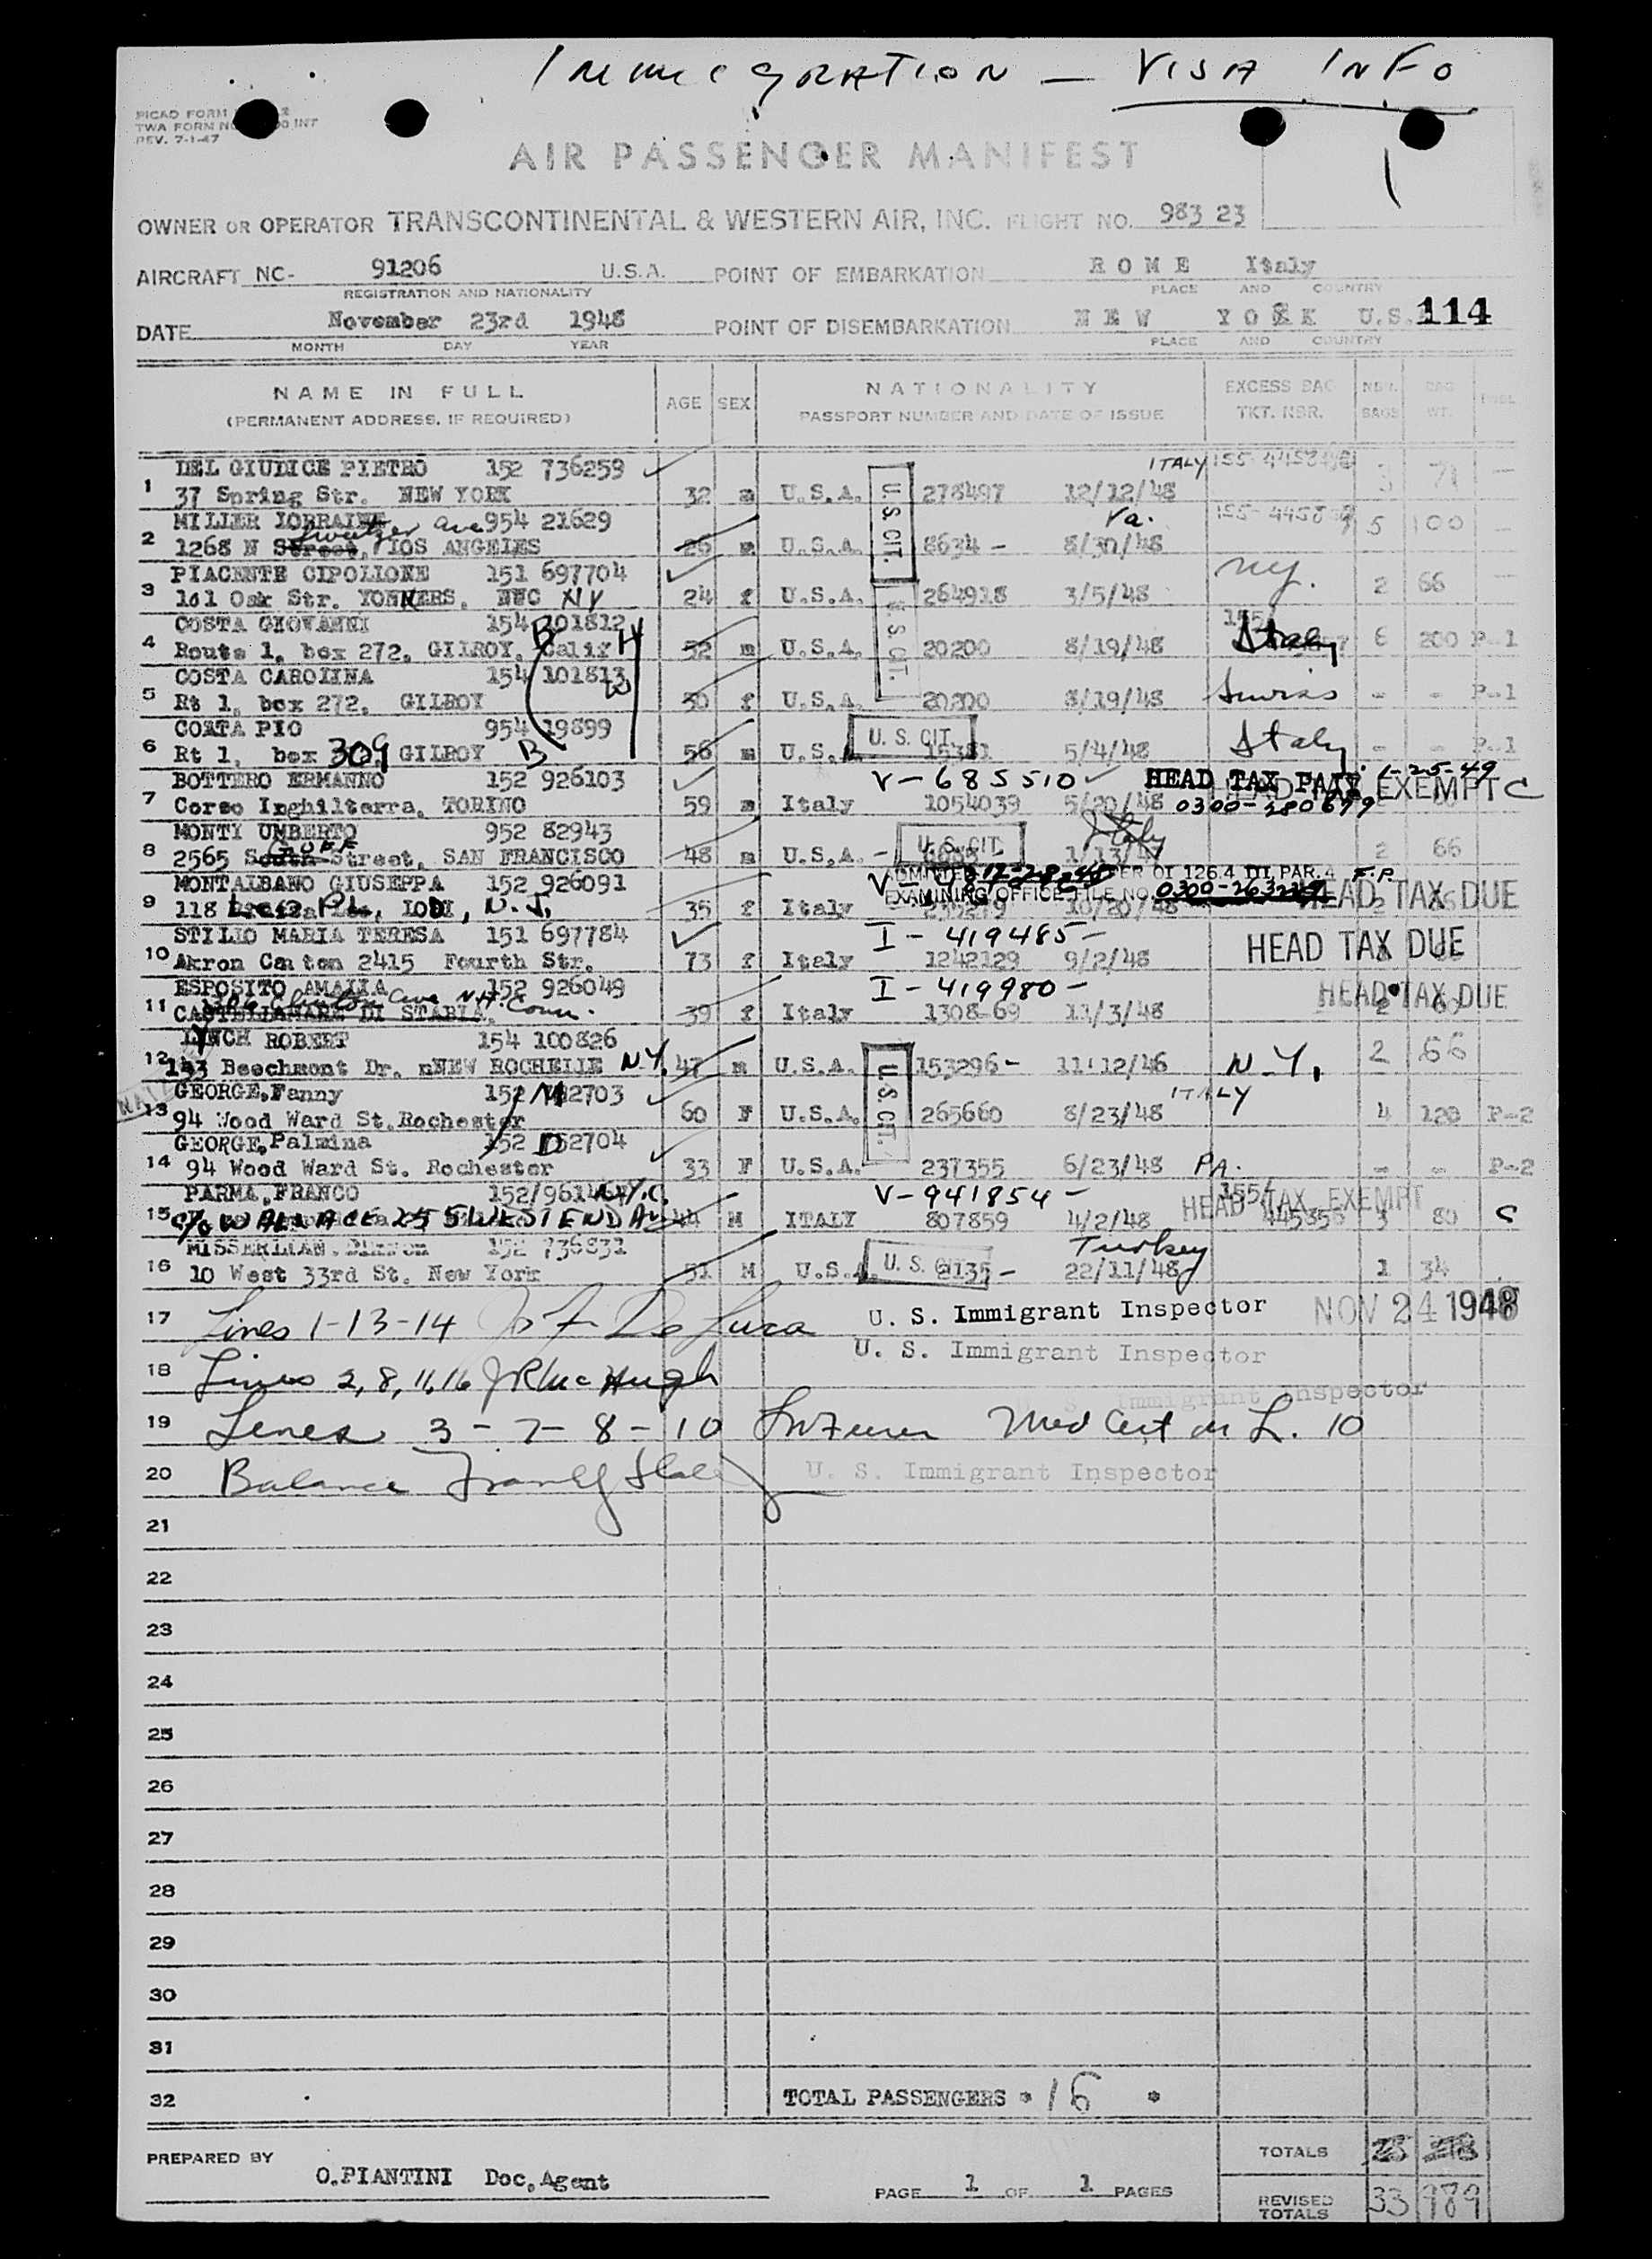 IMMIGRATION — VISA INFO
TWA FORM
REV. 7-1-47
AIR PASSENGER MANIFEST
OWNER OR OPERATOR TRANSCONTINENTAL & WESTERN AIR, INC. FLIGHT NO. 983 23
AIRCRAFT NC- 91206 U.S.A. POINT OF EMBARKATION ROME Italy
REGISTRATION AND NATIONALITY PLACE AND COUNTRY
DATE November 23rd 1948 POINT OF DISEMBARKATION NEW YORK U.S. 114
MONTH DAY YEAR PLACE AND COUNTRY
NAME IN FULL AGE SEX NATIONALITY EXCESS BAG NBR. BAG
(PERMANENT ADDRESS, IF REQUIRED) PASSPORT NUMBER AND DATE OF ISSUE TKT. NBR. BAGS WT.
DEL GIUDICE PIETRO 152 736259 ITALY
1 37 Spring Str. NEW YORK 32 m U.S.A. U.S. CIT. 278497 12/12/48 3 71 —
MILLER LORRAINE Sweetzer Ave 954 21629 Va.
2 1268 N Street, LOS ANGELES 26 U.S.A. 8634 - 8/30/48 5 100 —
PIACENTE CIPOLLONE 151 697704 NY.
3 161 Oak Str. YONKERS, NYC NY 24 f U.S.A. U.S. CIT. 264918 3/5/48 2 66 —
COSTA GIOVANNI 154 101812
4 Route 1, box 272, GILROY, Calif 52 m U.S.A. 20200 8/19/48 Italy 6 200 P-1
COSTA CAROLINA 154 101813
5 Rt 1, box 272, GILROY 50 f U.S.A. 20200 8/19/48 Swiss - - P-1
COSTA PIO 954 19899
6 Rt 1, box 309 GILROY 56 m U.S.A. U. S. CIT. 15381 5/4/48 Italy - - P-1
BOTTERO ERMANNO 152 926103 V-685510 HEAD TAX PAID 1-25-49
7 Corso Inghilterra, TORINO 59 m Italy 1054039 5/20/48 0300-280679 HEAD TAX EXEMPT C
MONTY UMBERTO 952 82943 Italy
8 2565 South Street, SAN FRANCISCO 48 m U.S.A. - U.S. CIT. 2 66
MONTALBANO GIUSEPPA 152 926091 ADMITTED PER OI 126.4 III, PAR. 4 F.P.
EXAMINING OFFICE FILE NO.
9 118 PL., LODI, N.J. 35 f Italy 10/20/48 HEAD TAX DUE
STILLO MARIA TERESA 151 697784 I - 419485 -
10 Akron Canton 2415 Fourth Str. 73 f Italy 1242129 9/2/48 HEAD TAX DUE
ESPOSITO AMALIA 152 926049 I - 419980 -
Clinton Ave N.H. Conn.
11 CASTELLAMARE DI STABIA. 39 f Italy 1308-69 11/3/48 HEAD TAX DUE
LYNCH ROBERT 154 100826
12 143 Beechmont Dr. nNEW ROCHELLE N.Y. 47 m U.S.A. U.S. CIT. 153296 - 11'12/46 N.Y. 2 66
GEORGE, Fanny ITALY
13 94 Wood Ward St. Rochester 60 F U.S.A. 265660 8/23/48 4 120 P-2
GEORGE, Palmina
14 94 Wood Ward St. Rochester 33 F U.S.A. 237355 6/23/48 PA. - - P-2
PARMA, FRANCO N.Y.C. V-941854 - HEAD TAX EXEMPT
15 c/o WALLACE WEST END AV 44 M ITALY 807859 4/2/48 3 80 C
MISSERLIAN 152 736831 Turkey
16 10 West 33rd St. New York 51 M U.S.A. U.S. CIT 2135 - 22/11/48 1 34
17 Lines 1-13-14 Jo F. De Luca U. S. Immigrant Inspector NOV 24 1948
U. S. Immigrant Inspector
18 Lines 2, 8, 11, 16 JR McHugh
Immigrant Inspector
19 Lines 3-7-8-10 Med Cert on L. 10
20 Balance U. S. Immigrant Inspector
21
22
23
24
25
26
27
28
29
30
31
32 TOTAL PASSENGERS * 16 *
PREPARED BY O.PIANTINI Doc.Agent
TOTALS
PAGE 1 OF 1 PAGES
REVISED TOTALS 33 989